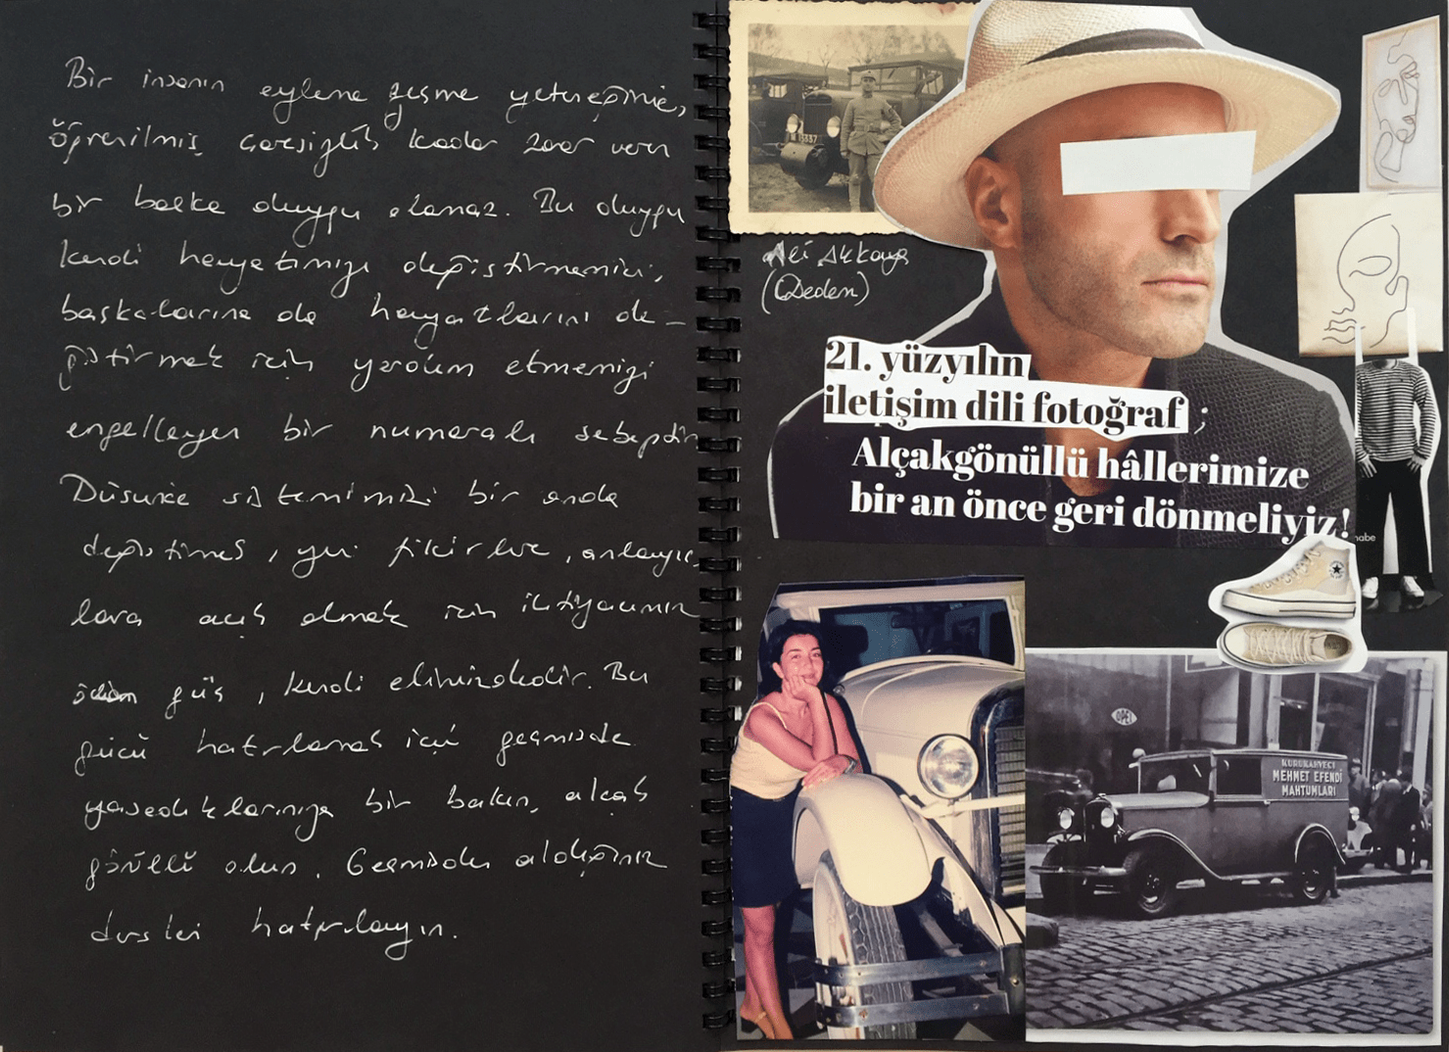 Bir insanın eyleme geçme yeteneğine,
öğrenilmiş çaresizlik kadar zarar veren
bir başka duygu olamaz. Bu duygu
kendi hayatımızı değiştirmemizi,
başkalarına da hayatlarını de-
ğiştirmek için yardım etmemizi
engelleyen bir numaralı sebeptir.
Düşünce sistemimizi bir anda
değiştirmek, yeni fikirlere, anlayış
lara açık olmak için ihtiyacımız
güç, kendi elimizdedir. Bu
gücü hatırlamak için geçmişte
yaşadıklarınıza bir bakın, alçak
gönüllü olun. Geçmişden aldığınız
dersleri hatırlayın.
15337
Ali Akkaya
(Dedem)
21. yüzyılın
iletişim dili fotoğraf ;
Alçakgönüllü hâllerimize
bir an önce geri dönmeliyiz!
nabe
OPEL
KURUKAHVECİ
MEHMET EFENDİ
MAHTUMLARI